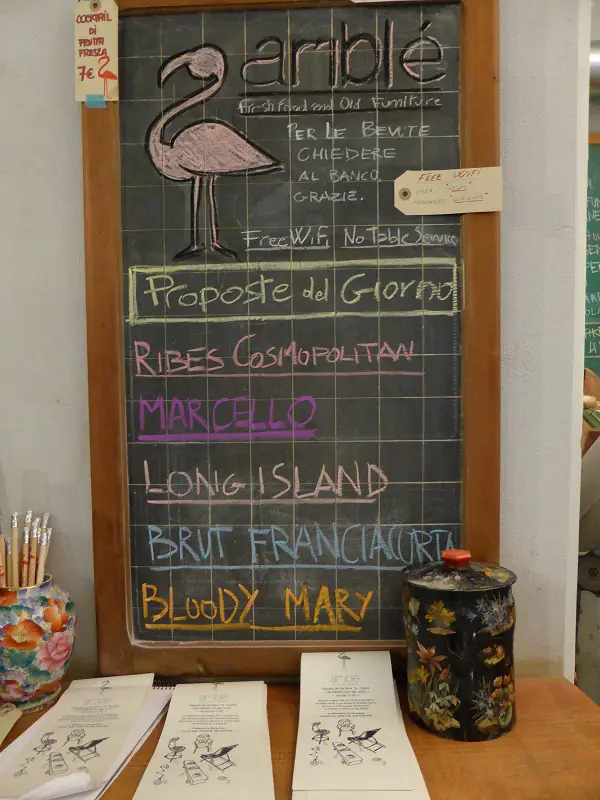 COCKTAIL
DI
FRUTTA
FRESCA
7€
amblé
Fresh Food and Old Furniture
PER LE BEVUTE
CHIEDERE
AL BANCO.
GRAZIE.
FREE WIFI
Free WiFi, No Table Service
Proposte del Giorno
RIBES COSMOPOLITAN
MARCELLO
LONG ISLAND
BRUT FRANCIACORTA
BLOODY MARY
amblé
amblé
amblé